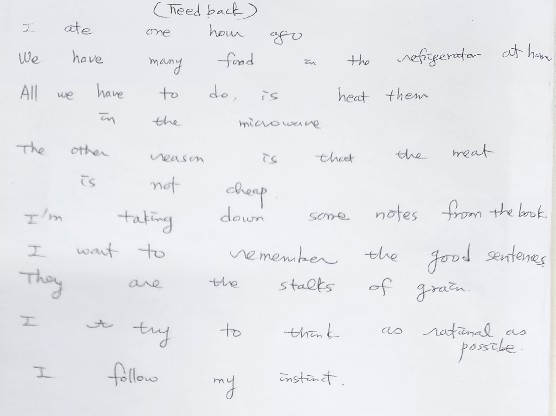 (Feed back)
I ate one hour ago
We have many food in the refrigerator at home
All we have to do, is heat them
in the microwave
The other reason is that the meat
is not cheap
I'm taking down some notes from the book
I want to remember the good sentences
They are the stalks of grain.
I try to think as rational as
possible.
I follow my instinct.